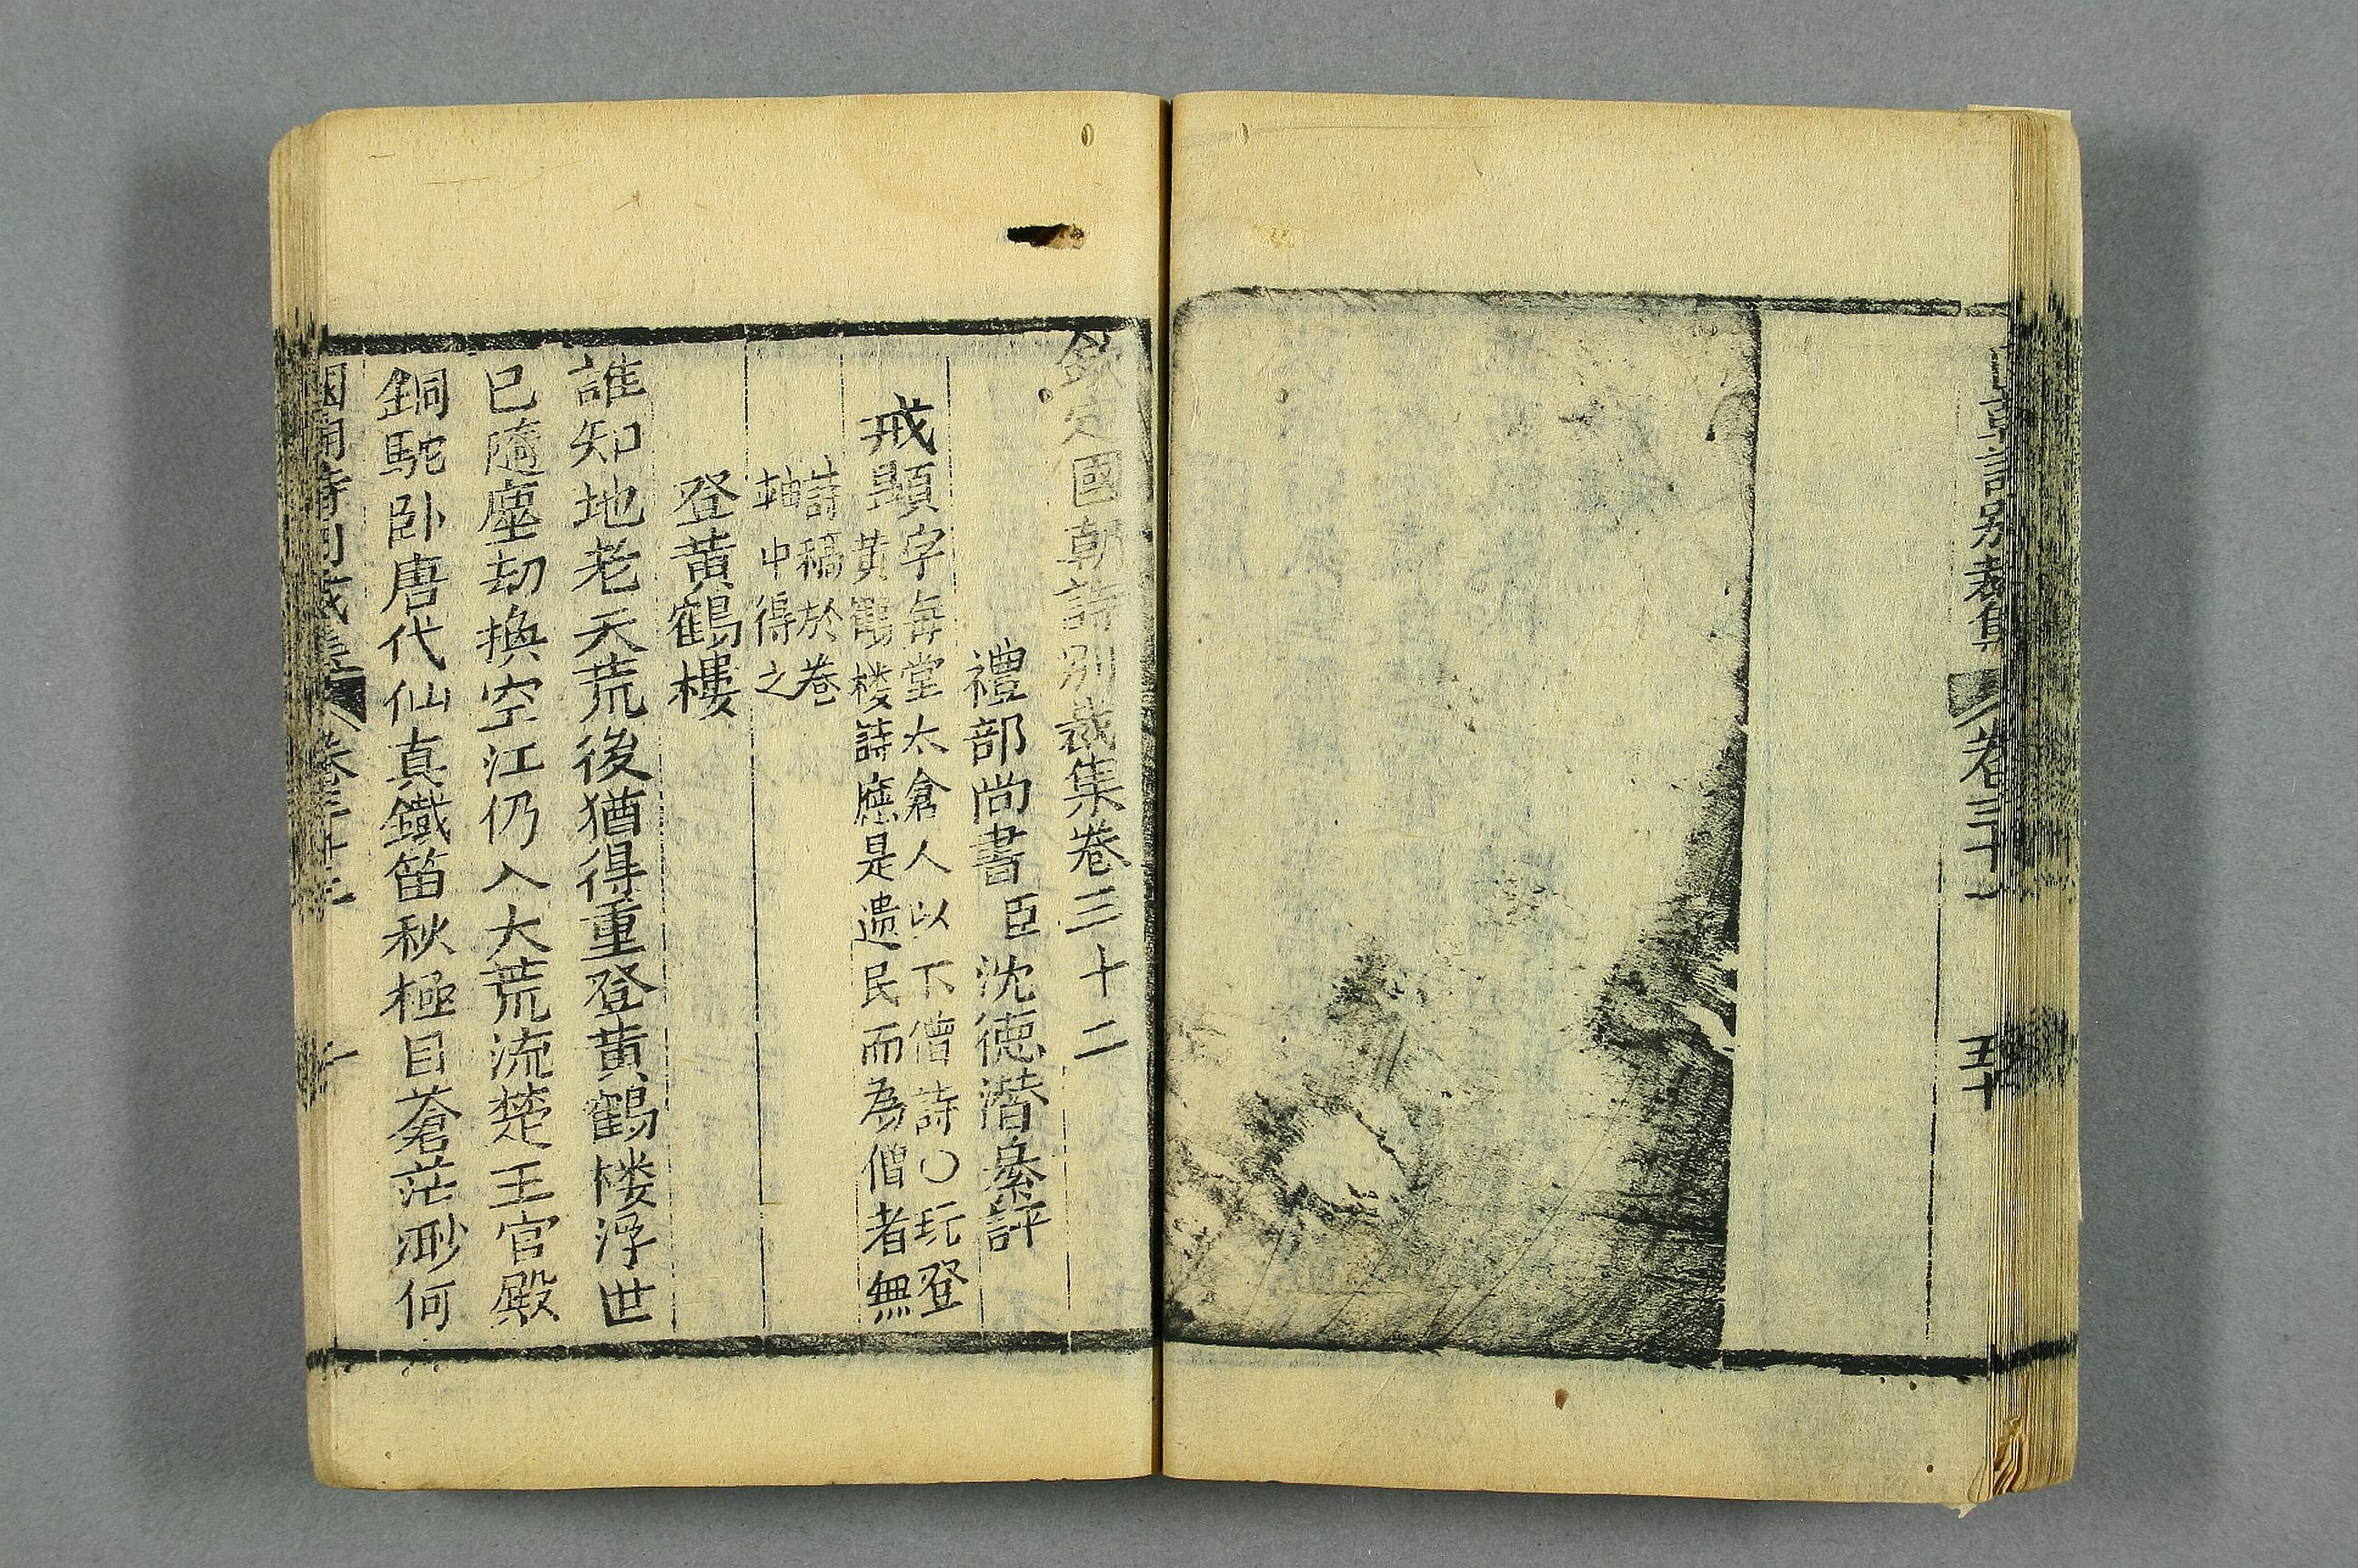 卷三十一
五十
欽定國朝詩別裁集卷三十二
禮部尚書臣沈德潛纂評
戒顯字每堂太倉人以下僧詩○玩登
黃鶴楼詩應是遗民而為僧者無
詩稿於卷
軸中得之
登黃鶴樓
誰知地老天荒後猶得重登黃鶴楼浮世
已隨塵刧換空江仍入大荒流楚王官殿
銅駝卧唐代仙真鐵笛秋極目蒼茫渺何